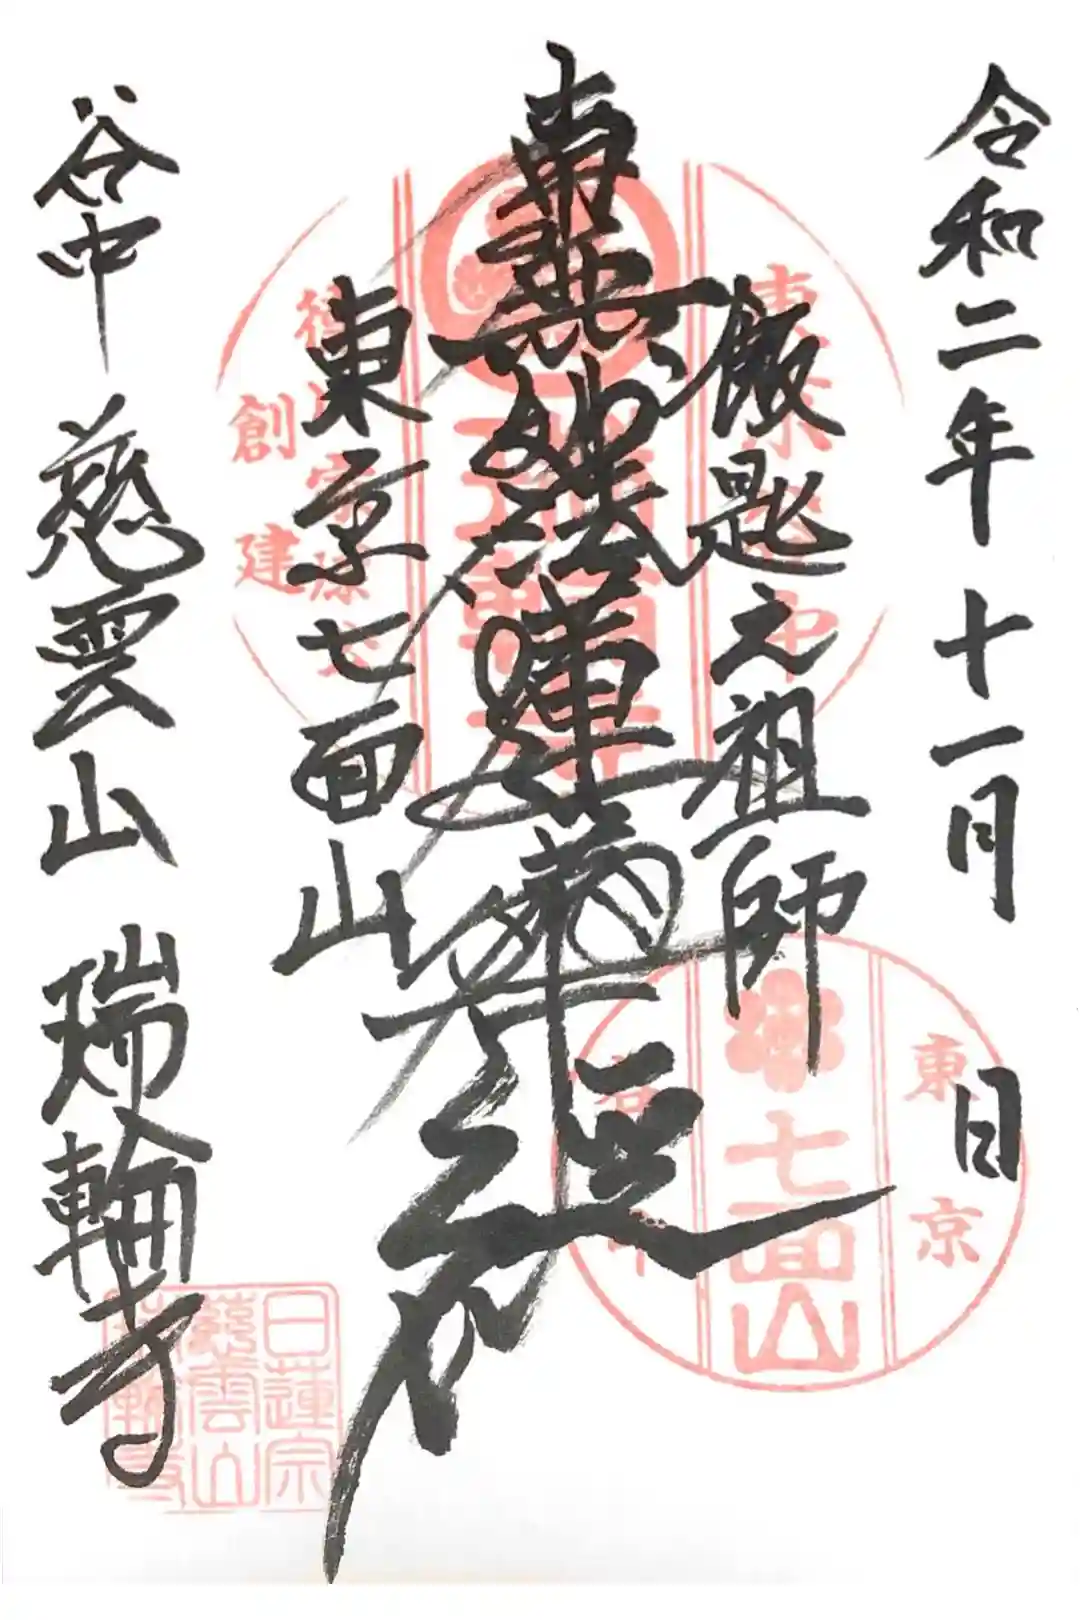 令和二年十一月 日
飯匙之祖師
南無妙法蓮華経
東京七面山
谷中 慈雲山 瑞輪寺
創建
東京
七面山
日蓮宗
慈雲山
瑞輪寺